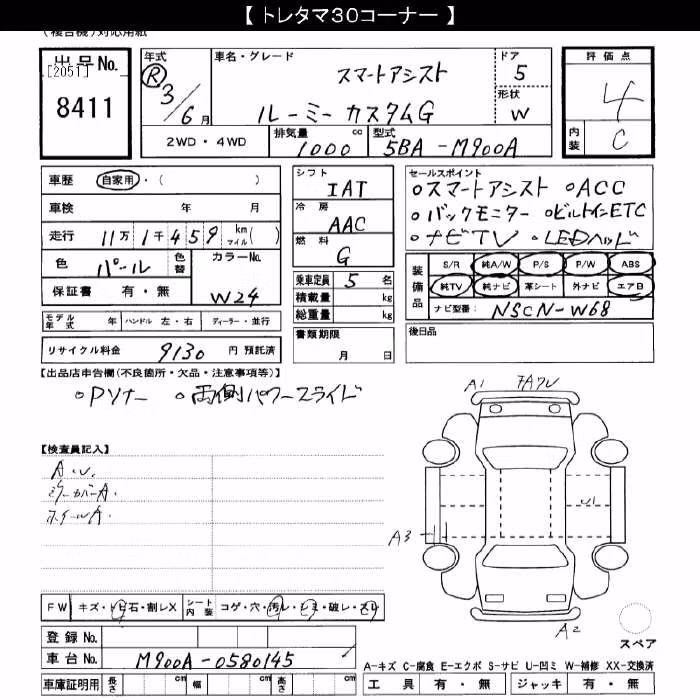 【 トレタマ30コーナー 】
(複合機)対応用紙
出品No.
[2051]
8411
年式
R 3/6月
車名・グレード
スマートアシスト
ルーミー カスタムG
ドア
5
形状
W
評価点
4
内装
C
2WD・4WD
排気量
1000 cc
型式
5BA-M900A
車歴 自家用・( )
車検 年 月
走行 11万1千459 km マイル( )
色 パール 色替
カラーNo.
W24
保証書 有・無
モデル年式 年 ハンドル 左・右 ディーラー・並行
リサイクル料金 9130 円 預託済
シフト
IAT
冷房
AAC
燃料
G
乗車定員 5 名
積載量 kg
総重量 kg
書類期限
月 日
セールスポイント
○スマートアシスト ○ACC
○バックモニター ○ビルトインETC
○ナビTV ○LEDヘッド
装備品
S/R 純A/W P/S P/W ABS
純TV 純ナビ 革シート 外ナビ エアB
ナビ型番: NSCN-W68
後日品
【出品店申告欄(不良箇所・欠品・注意事項等)】
○Pソナー ○両側パワースライド
【検査員記入】
A.U.
ミラーカバーA.
ホイールA
A1
A3
W1
A2
スペア
FW キズ・トビ石・割レX シート内装 コゲ・穴・汚レ・シミ・破レ・スレ
登録No.
車台No. M900A-0580145
車庫証明用 長さ cm 幅 cm 高さ cm
A-キズ C-腐食 E-エクボ S-サビ U-凹ミ W-補修 XX-交換済
工具 有・無 ジャッキ 有・無